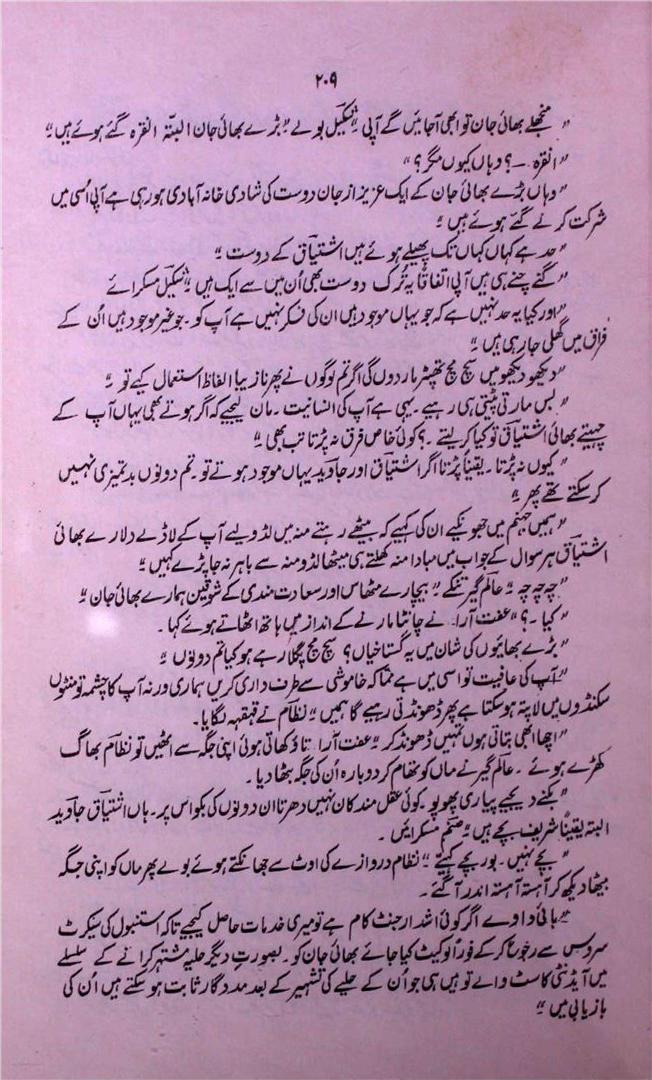 ۲۰۹
”منجھلے بھائی جان تو ابھی آجائیں گے آپی“ شکیل بولے ”بڑے بھائی جان البتہ انقرہ گئے ہوئے ہیں“
”انقرہ ۔؟ وہاں کیوں مگر؟“
”وہاں بڑے بھائی جان کے ایک عزیز از جان دوست کی شادی خانہ آبادی ہو رہی ہے آپی اُسی میں
شرکت کرنے گئے ہوئے ہیں“
”حد ہے کہاں کہاں تک پھیلے ہوئے ہیں اشتیاق کے دوست“
”گنے چنے ہی ہیں آپی اتفاقاً یہ تُرک دوست بھی اُن میں سے ایک ہیں“ شکیل مسکرائے
”اور کیا یہ حد نہیں ہے کہ جو یہاں موجود ہیں ان کی فکر نہیں ہے آپ کو۔ جو غیر موجود ہیں اُن کے
فراق میں گھلی جا رہی ہیں“
”دیکھو دیکھو میں سچ مچ تھپڑ مار دوں گی اگر تم لوگوں نے پھر نازیبا الفاظ استعمال کیے تو“
”بس مارتی پٹتی ہی رہیے۔ یہی ہے آپ کی انسانیت۔ مان لیجیے کہ اگر ہوتے بھی یہاں آپ کے
چہیتے بھائی اشتیاق تو کیا کر لیتے ۔؟ کوئی خاص فرق نہ پڑتا تب بھی“
”کیوں نہ پڑتا۔ یقیناً پڑتا اگر اشتیاق اور جاوید یہاں موجود ہوتے تو۔ تم دونوں بدتمیزی نہیں
کر سکتے تھے پھر“
”ہمیں جہنم میں جھونکیے ان کی کہیے کہ بیٹھے رہتے منہ میں لڈو لیے آپ کے لاڈلے دلارے بھائی
اشتیاق ہر سوال کے جواب میں مبادا منہ کھلتے ہی میٹھا لڈو منہ سے باہر نہ جا پڑے کہیں“
”چہ چہ چہ“ عالم گیر تنکے ”بیچارے مٹھاس اور سعادت مندی کے شوقین ہمارے بھائی جان“
”کیا ۔؟“ عفت آرا نے چانٹا مارنے کے انداز میں ہاتھ اٹھاتے ہوئے کہا۔
”بڑے بھائیوں کی شان میں یہ گستاخیاں؟ سچ مچ پگلا رہے ہو کیا تم دونوں“
”آپ کی عافیت تو اسی میں ہے تماکہ خاموشی سے طرف داری کریں ہماری ورنہ آپ کا چشمہ تو منٹوں
سکنڈوں میں لاپتہ ہو سکتا ہے پھر ڈھونڈتی رہیے گا ہمیں“ نظام نے قہقہہ لگایا۔
”اچھا ابھی بتاتی ہوں تمہیں ڈھونڈ کر“ عفت آرا تاؤ کھاتی ہوئی اپنی جگہ سے اٹھیں تو نظام بھاگ
کھڑے ہوئے۔ عالم گیر نے ماں کو تھام کر دوبارہ اُن کی جگہ بٹھا دیا۔
”بکنے دیجیے پیاری پھوپو۔ کوئی عقل مند کان نہیں دھرتا ان دونوں کی بکواس پر۔ ہاں اشتیاق جاوید
البتہ یقیناً شریف بچے ہیں“ صنم مسکرائیں۔
”بچے نہیں۔ بور بچے کہیے“ نظام دروازے کی اوٹ سے جھانکتے ہوئے بولے پھر ماں کو اپنی جگہ
بیٹھا دیکھ کر آہستہ آہستہ اندر آگئے۔
”بائی دا وے اگر کوئی اشد ارجنٹ کام ہے تو میری خدمات حاصل کیجیے تاکہ استنبول کی سیکرٹ
سروس سے رجوع کر کے فوراً لوکیٹ کیا جائے بھائی جان کو۔ بصورت دیگر حلیہ مشتہر کرانے کے سلسلے
میں آیڈنٹی کاسٹ والے تو ہیں ہی جو اُن کے حلیے کی تشہیر کے بعد مددگار ثابت ہو سکتے ہیں اُن کی
بازیابی میں“